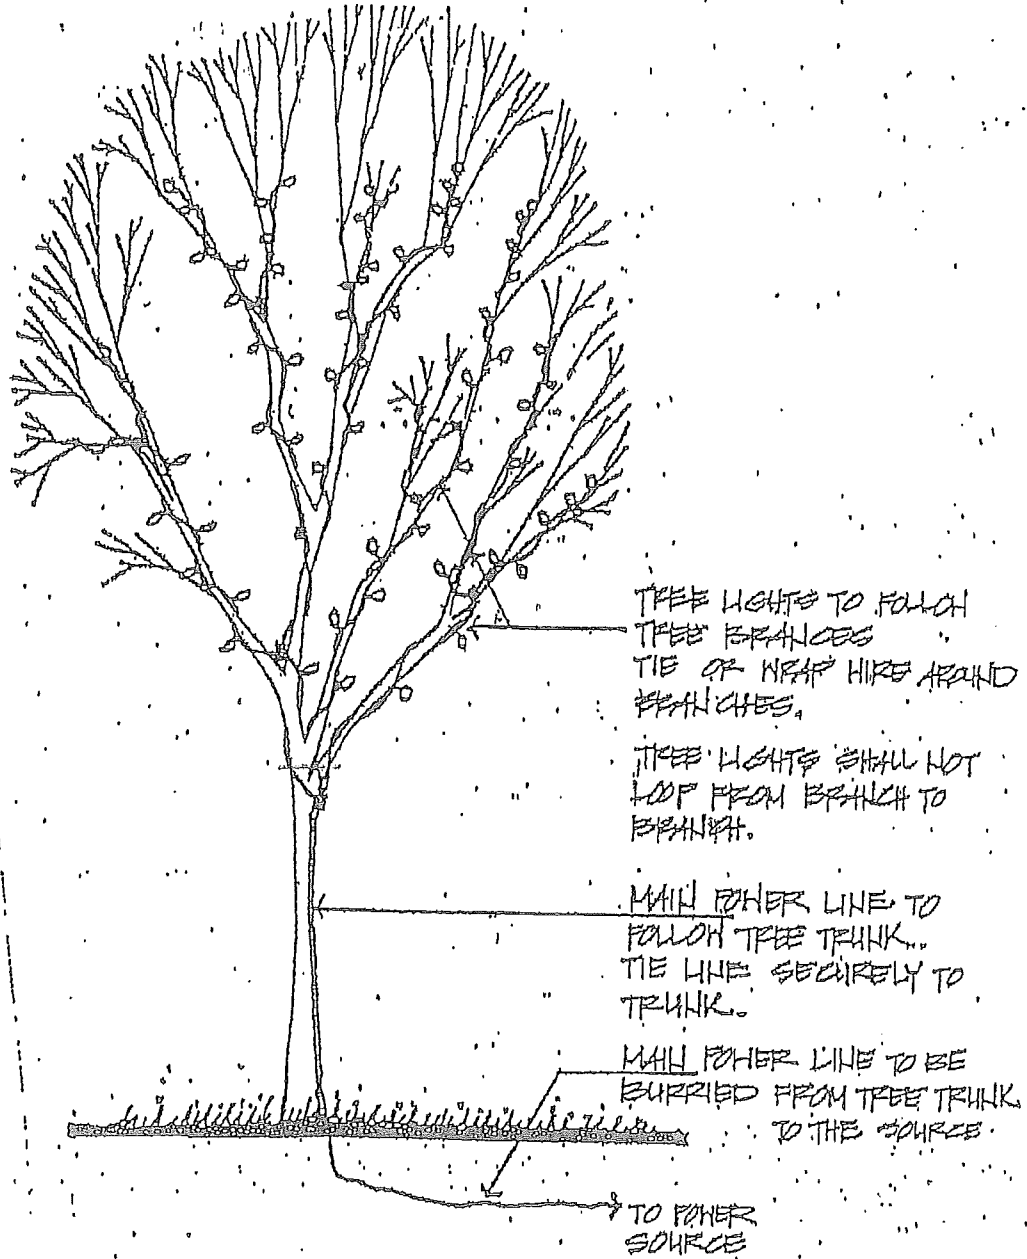 TREE LIGHTS TO FOLLOW
TREE BRANCES
TIE OR WRAP WIRE AROUND
BRANCHES.
TREE LIGHTS SHALL NOT
LOOP FROM BRANCH TO
BRANCH.
MAIN POWER LINE TO
FOLLOW TREE TRUNK.
TIE LINE SECURELY TO
TRUNK.
MAIN POWER LINE TO BE
BURRIED FROM TREE TRUNK
TO THE SOURCE.
TO POWER
SOURCE